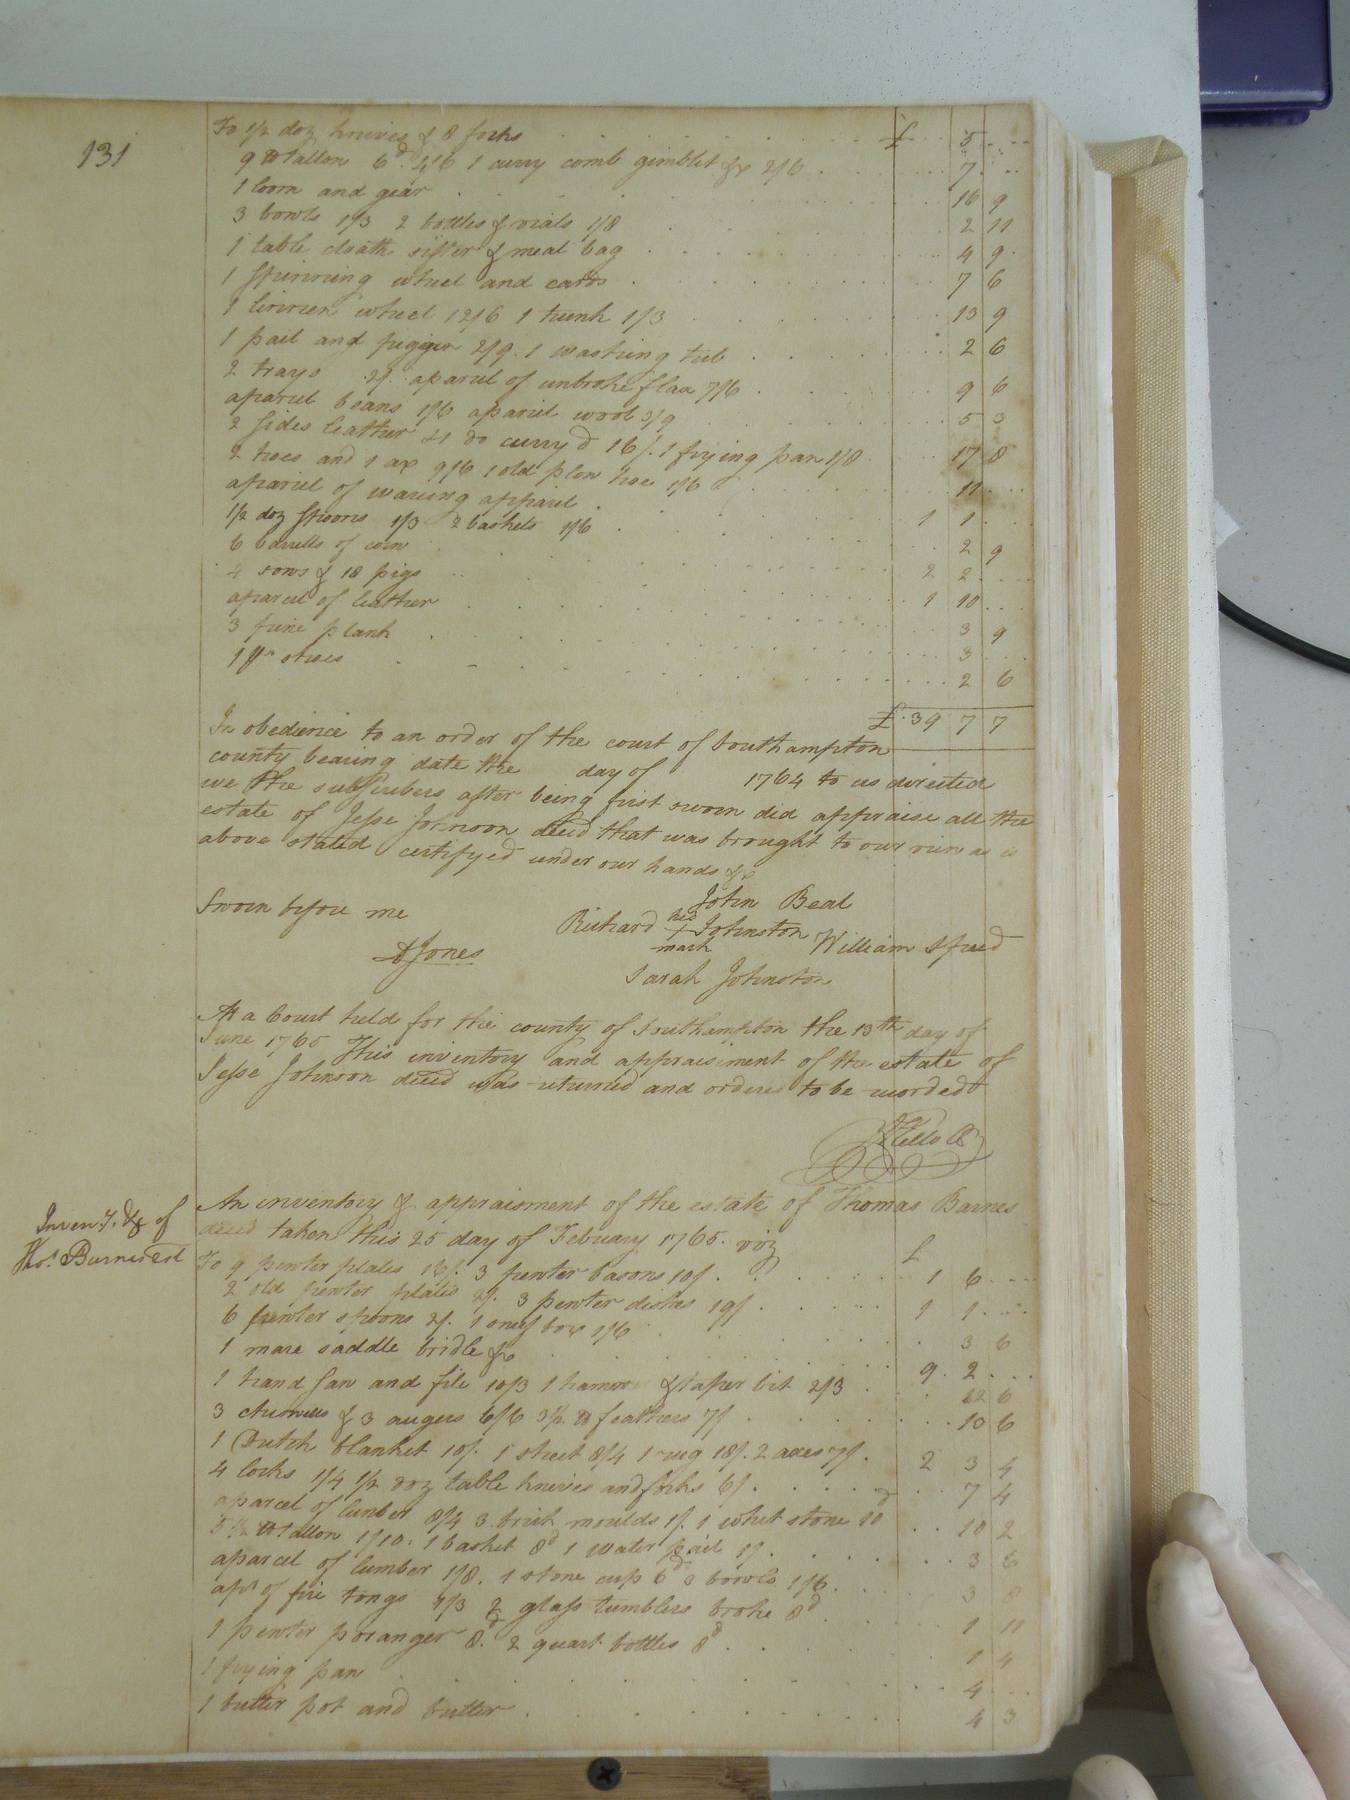 131
To 1/2 doz knives & 8 forks £ 5
9 lb tallon 6d 4/6 1 curry comb gimblet &c 2/6 7
1 loom and gear 16 9
3 bowls 1/3 2 bottles & vials 1/8 2 11
1 table cloath sifter & meal bag 4 9
1 spinning wheel and cards 7 6
1 linnen wheel 12/6 1 trunk 1/3 13 9
1 pail and piggin 2/9. 1 washing tub 2 6
2 trays 2/. aparcel of unbroke flax 7/6 9 6
aparcel beans 1/6 aparcel wool 3/9 5 3
2 sides leather £1 do curry'd 16/. 1 frying pan 1/8 17 8
2 hoes and 1 ax 9/6 1 old plow hoe 1/6 11
aparcel of waring apparel 1 1
1/2 doz spoons 1/3 2 baskets 1/6 2 9
6 barells of corn 2 2
4 sows & 18 pigs 1 10
aparcel of leather 3 9
3 pine plank 3
1 pr shoes 2 6
£ 39 7 7
In obedience to an order of the court of Southampton
county bearing date the day of 1764 to us directed
we the subscribers after being first sworn did appraise all the
estate of Jesse Johnson deced that was brought to our view as is
above stated certifyed under our hands &c
John Beal
Sworn before me Richard his Johnston William Speed
mark
Jones Sarah Johnston
At a Court held for the county of Southampton the 13th day of
June 1765 This inventory and appraisment of the estate of
Jesse Johnson deced was returned and ordered to be recorded
Kello
Inven.y. &c of
Thos. Barnes
An inventory & appraisment of the estate of Thomas Barnes
deced taken this 25 day of February 1765. viz £
To 9 pewter plates 16/. 3 pewter basons 10/. 1 6
2 old pewter plates 2/. 3 pewter dishes 19/. 1 1
6 pewter spoons 2/. 1 snuf box 1/6 3 6
1 mare saddle bridle &c 9 2
1 hand saw and file 10/3 1 hammer & taper bit 2/3 12 6
3 chissells & 3 augers 6/6 3 1/2 lb feathers 7/ 10 6
1 Dutch blanket 10/. 1 sheet 8/4 1 rug 18/. 2 axes 7/. 2 3 4
4 locks 1/4 1/2 doz table knives and forks 6/. 7 4
aparcel of lumber 8/4 3 brick moulds 1/. 1 whet stone 10d 10 2
5 1/2 lb tallon 1/10. 1 basket 8d 1 water pail 1/. 3 6
aparcel of lumber 1/8. 1 stone cup 6d 3 bowls 1/6. 3 8
apr of fire tongs 1/3 2 glass tumblers broke 8d 1 11
1 pewter poranger 8d. 2 quart bottles 8d 1 4
1 frying pan 4
1 butter pot and butter 4 3